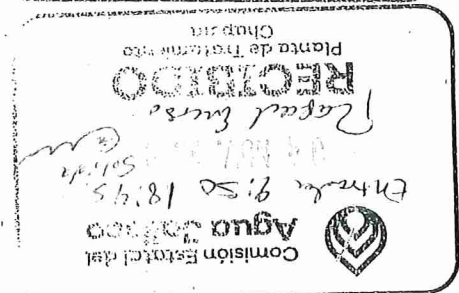 Comisión Estatal del
Agua Jalisco
Entrada 9:50 18:45
Salida
NOV.
Rafael
RECIBIDO
Planta de Tratamiento
Chapala